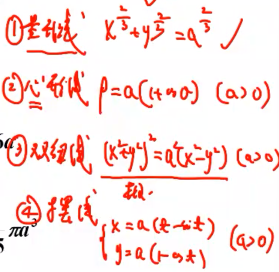 ①星形线 x^{2/3}+y^{2/3}=a^{2/3} ✓
②心形线 ρ=a(1+cosθ) (a>0)
③双纽线 (x²+y²)²=a²(x²-y²) (a>0)
④摆线 { x=a(t-sint)
y=a(1-cost) (a>0)
πa³